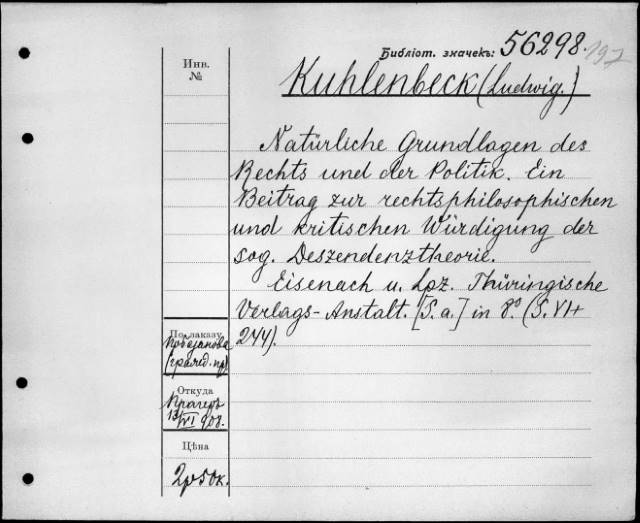 Библіот. значекъ: 56298. 197
Инв.
№
Kuhlenbeck (Ludwig.)
Natürliche Grundlagen des
Rechts und der Politik. Ein
Beitrag zur rechtsphilosophischen
und kritischen Würdigung der
sog. Deszendenztheorie.
Eisenach u. Lpz. Thüringische
Verlags-Anstalt. [S. a.] in 8.º (S. VI+
244).
По заказу
Откуда
13/VI 908.
Цѣна
2р50к.